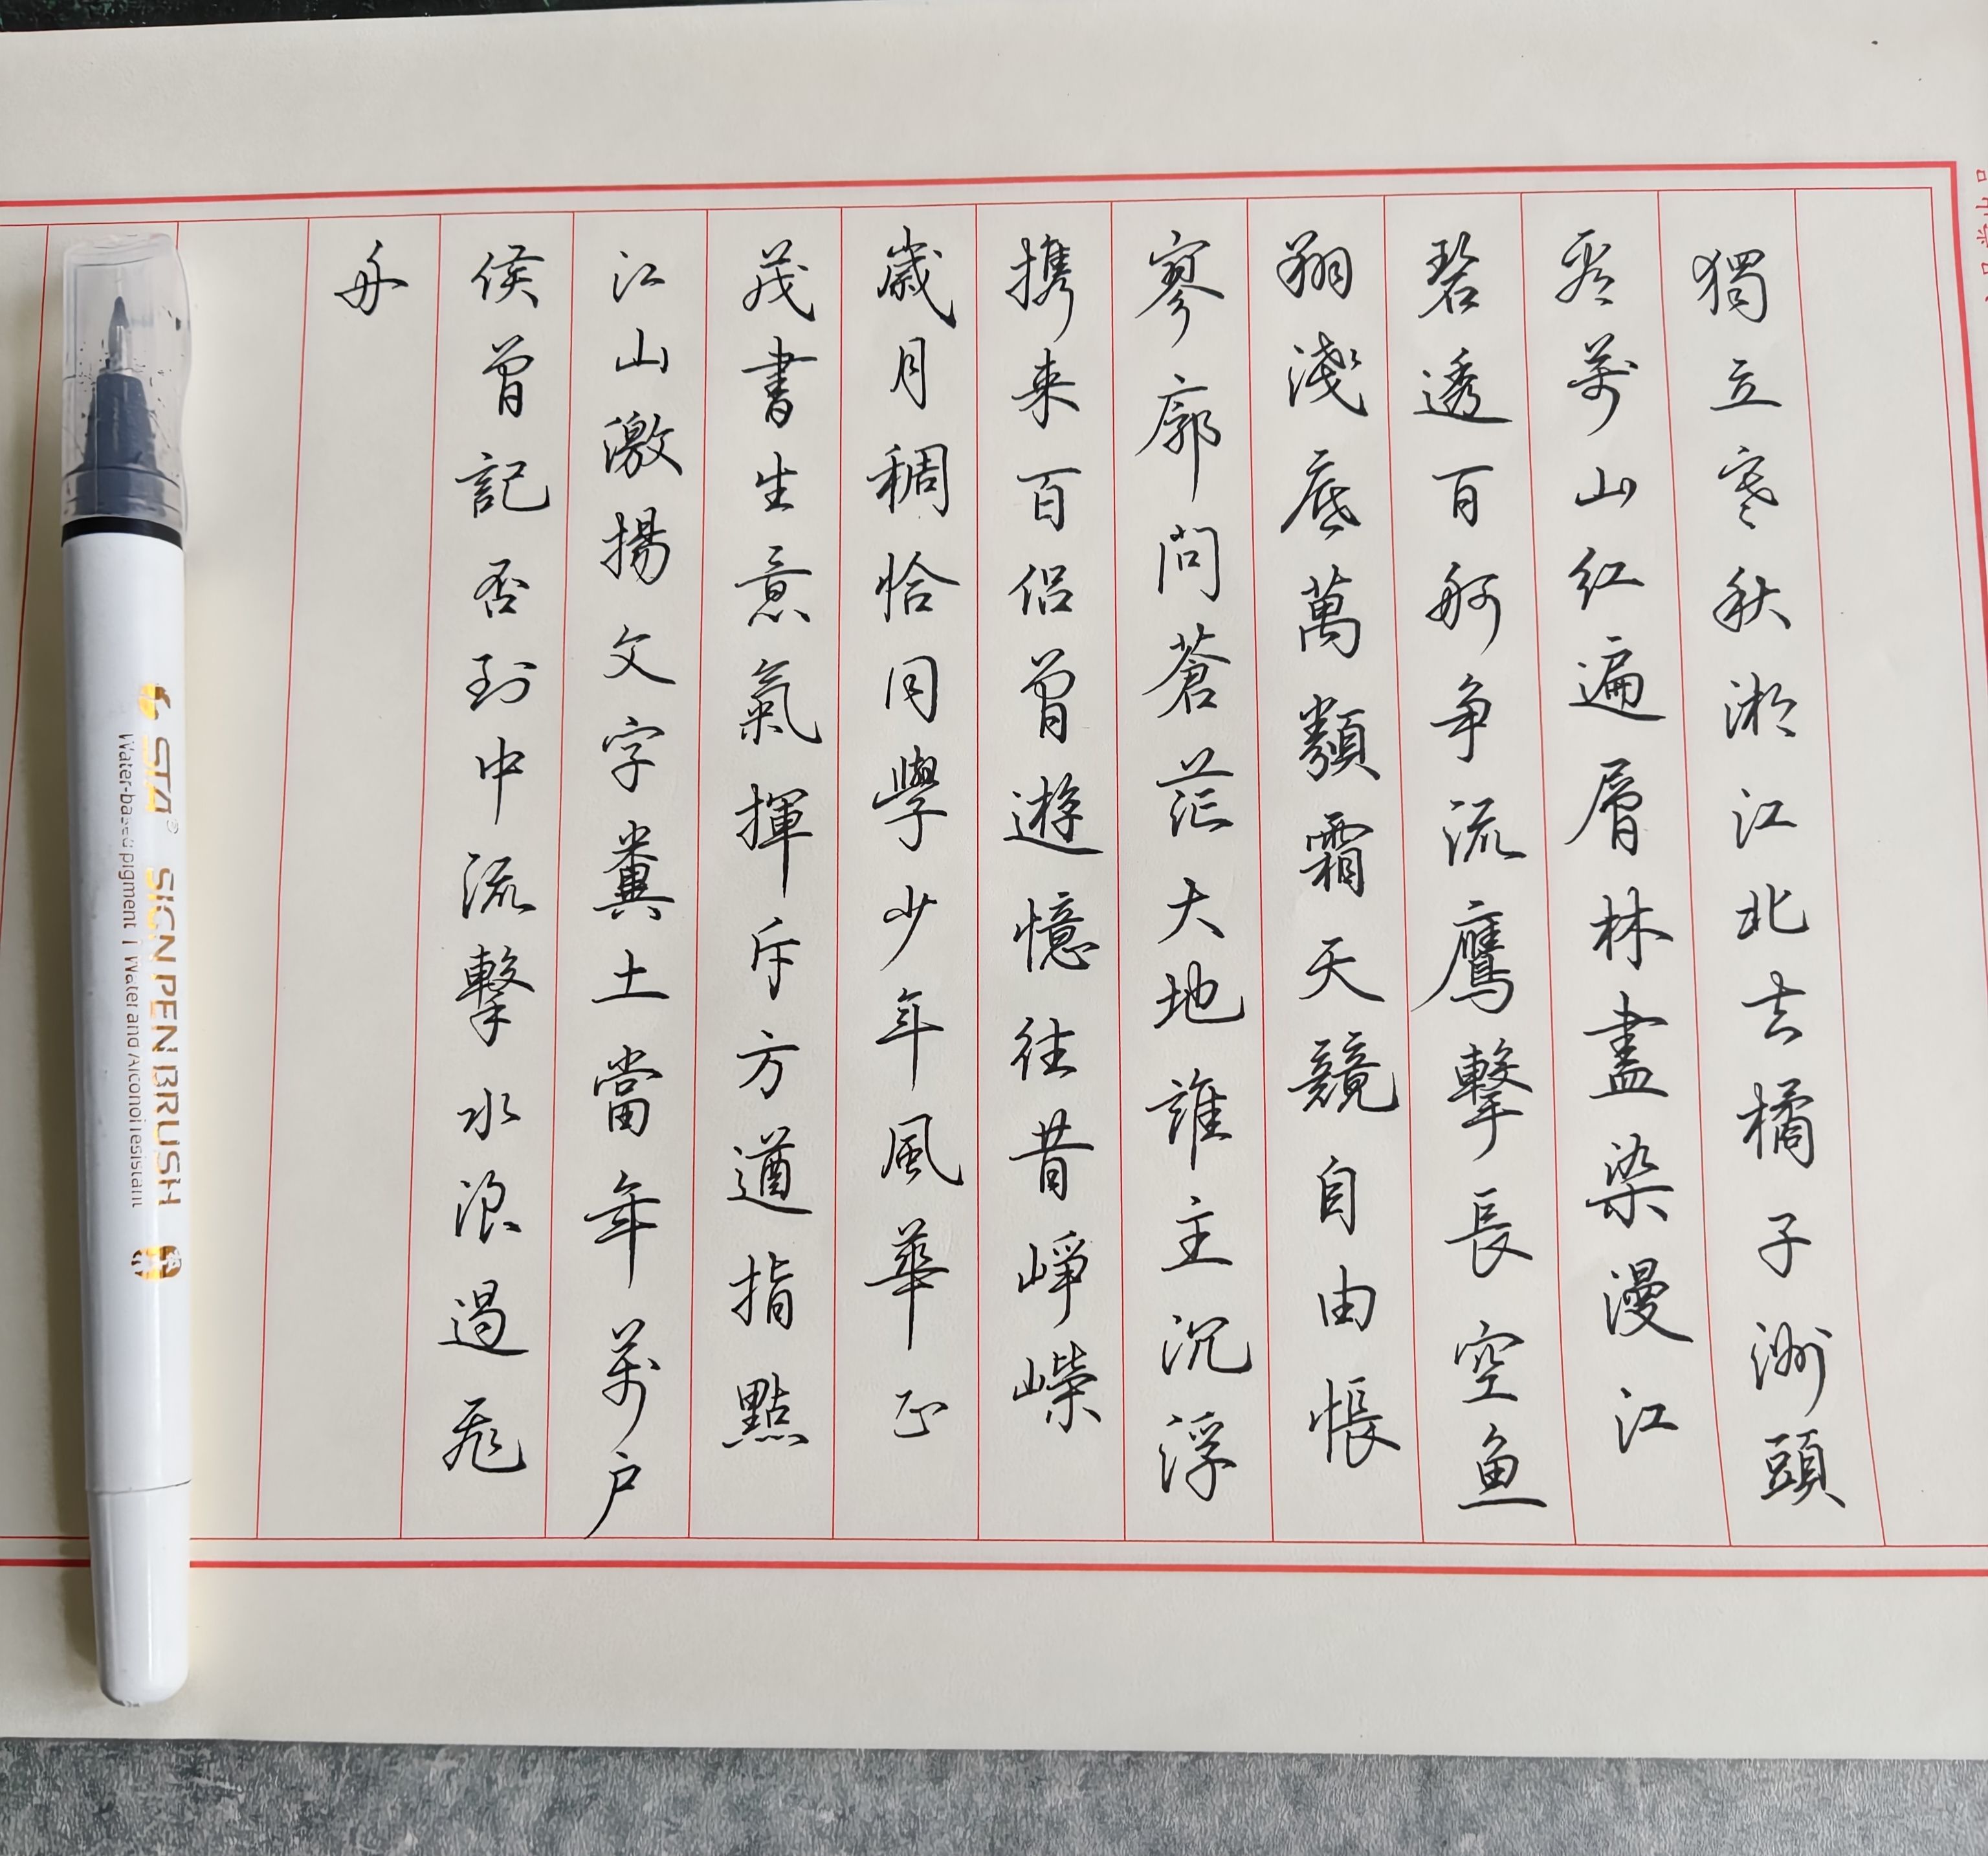 獨立寒秋湘江北去橘子洲頭
看萬山紅遍層林盡染漫江
碧透百舸争流鷹擊長空魚
翔淺底萬類霜天競自由悵
寥廓問蒼茫大地誰主沉浮
攜来百侣曾遊憶往昔崢嶸
歲月稠恰同學少年風華正
茂書生意氣揮斥方遒指點
江山激揚文字糞土當年萬户
侯曾記否到中流擊水浪遏飛
舟
STA® SIGN PEN BRUSH
Water-based pigment | Water and Alcohol resistant